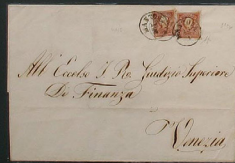 All' Eccelso I. R. Giudizio Superiore
Di Finanza
Venezia